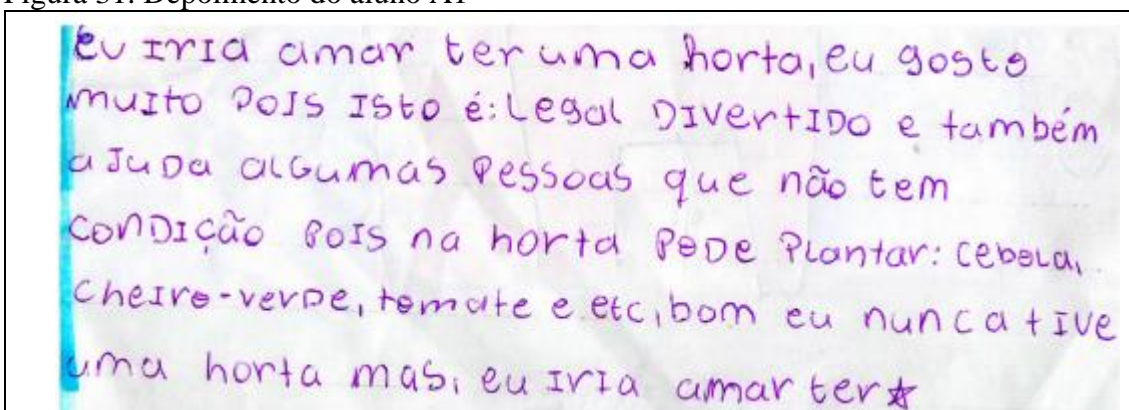 eu IrIa amar ter uma horta, eu gosto
muIto POIS ISto é: LegaL DIVertIDO e também
aJuDa aLGumas Pessoas que não tem
ConDIção POIS na horta PODe PLantar: CeboLa,
CheIro-verDe, tomate e etc, bom eu nunca tIVe
uma horta mas, eu IrIa amar ter☆